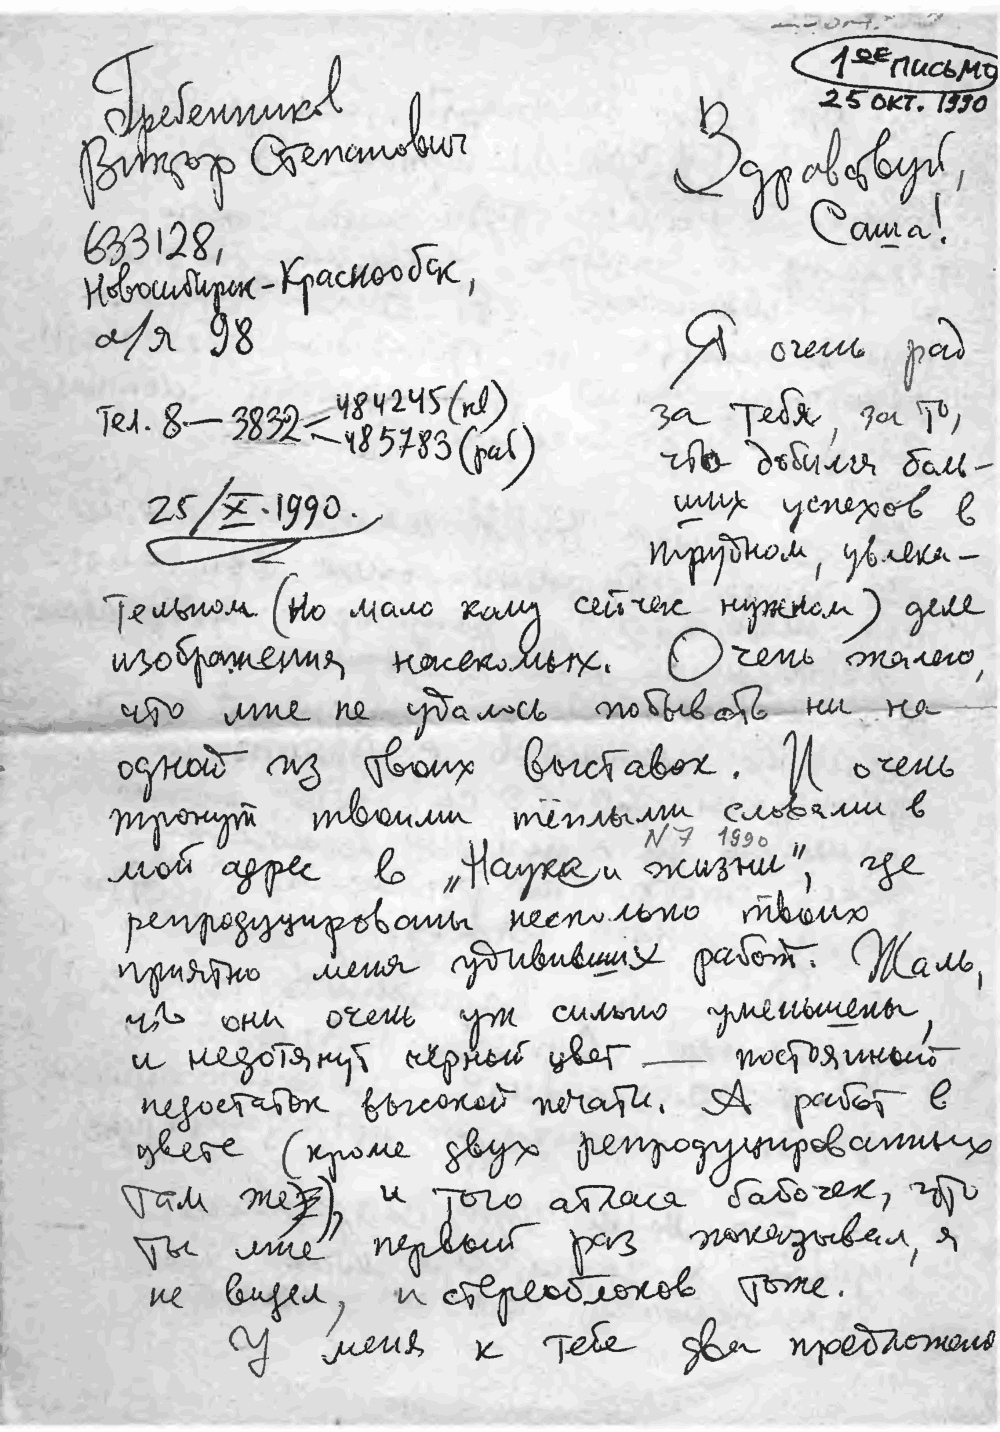 1ое ПИСЬМО
25 ОКТ. 1990
Гребенников
Виктор Степанович
633128,
Новосибирск-Краснообск,
а/я 98
Тел. 8 — 3832 484245 (кв)
485783 (раб)
25/X.1990.
Здравствуй,
Саша!
Я очень рад
за тебя, за то,
что добился боль-
ших успехов в
трудном, увлека-
тельном (но мало кому сейчас нужном) деле
изображения насекомых. Очень жалею,
что мне не удалось побывать ни на
одной из твоих выставок. И очень
тронут твоими тёплыми словами в
N 7 1990
мой адрес в „Наука и жизни", где
репродуцированы несколько твоих
приятно меня удививших работ. Жаль,
что они очень уж сильно уменьшены,
и недотянут чёрный цвет — постоянный
недостаток высокой печати. А работ в
цвете (кроме двух репродуцированных
там же), и того атласа бабочек, что
ты мне первый раз показывал, я
не видел, и стереоблоков тоже.
У меня к тебе два предложения